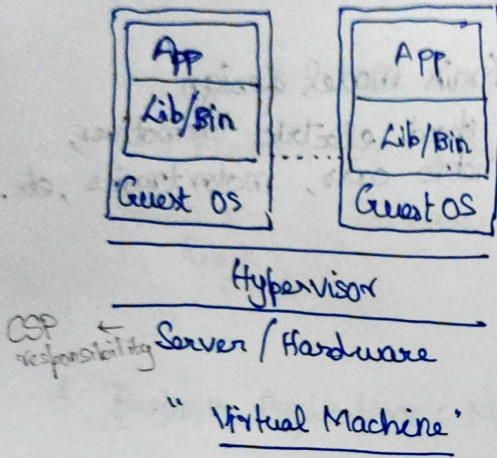 App
Lib/Bin
Guest OS
App
Lib/Bin
Guest OS
Hypervisor
CSP
responsibility
Server / Hardware
"Virtual Machine"